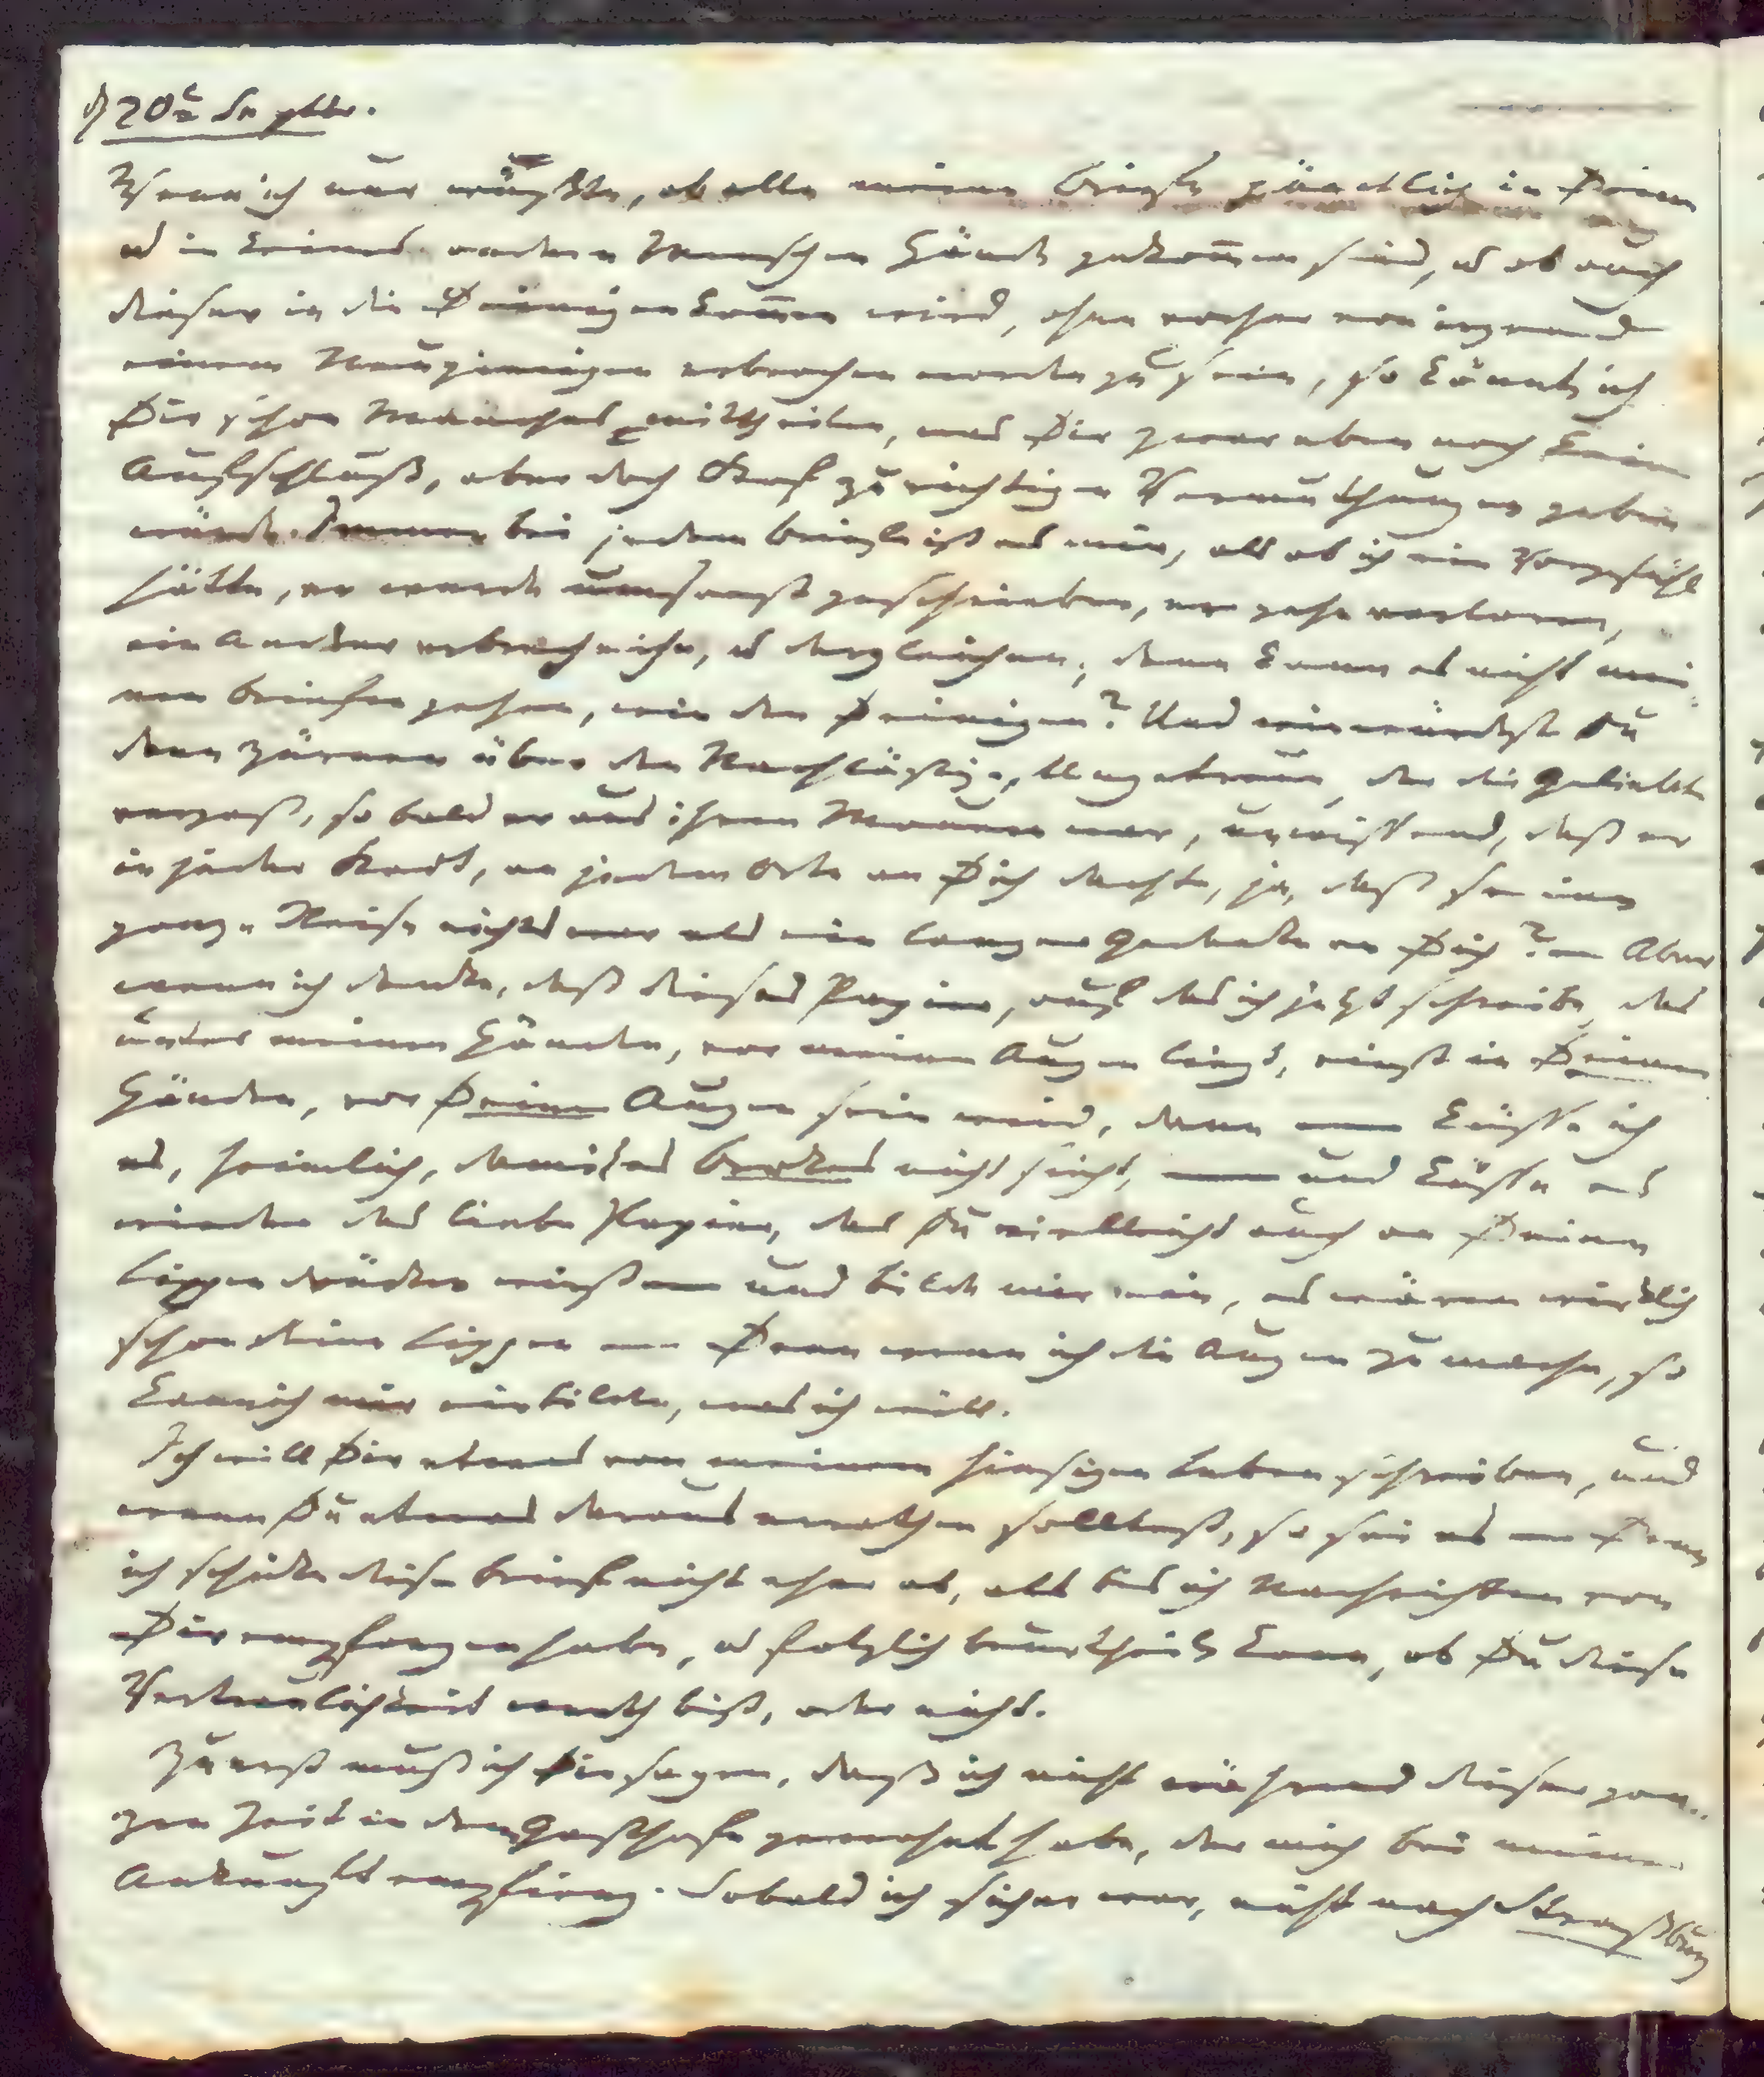 d 20t Septbr.
Wenn ich nur wüßte, ob alle meine Briefe pünctlich in Deine
u in keines andern Menschen Hände gekom̅en sind, u ob auch
dieser in die Deinigen kom̅en wird, ohne vorher von irgend
einem Neugierigen erbrochen worden zu sein, so könnte ich
Dir schon Manches mittheilen, was Dir zwar eben noch keinen
Aufschluß, aber doch Stoff zu richtigen Vermuthungen geben
würde. Immer bei jedem Briefe ist es mir, als ob ich ein Vorgefühl
hätte, er werde umsonst geschrieben, er gehe verloren,
ein Andrer erbreche ihn, u dergleichen; denn kann es nicht mei-
nen Briefen gehen, wie den Deinigen? Und wie würdest Du
dann zürnen über den Nachläßigen, Ungetreuen, der die Geliebte
vergaß, so bald er aus ihren Mauern war, unwissend, daß er
in jeder Stadt, an jedem Orte an Dich dachte, ja, daß seine
ganze Reise nichts war als ein langer Gedanke an Dich? — Aber
wenn ich denke, daß dieses Papier, auf das ich jetzt schreibe, das
unter meinen Händen, vor meinen Augen liegt, einst in Deinen
Händen, vor Deinen Augen sein wird, dann — küsse ich
es, heimlich, damit es Brokes nicht sieht, — und küsse es
wieder das liebe Papier, das Du vielleicht auch an Deine
Lippen drücken wirst — und bilde mir ein, es wären wirklich
schon Deine Lippen — Denn wenn ich die Augen zu mache, so
kann ich mir einbilden, was ich will.
Ich will Dir etwas von meinem hiesigen Leben schreiben, und
wenn Du etwas daraus errathen solltest, so sei es — Denn
ich schicke diesen Brief nicht eher ab, als bis ich Nachrichten von
Dir empfangen habe, u folglich beurtheilen kann, ob Du diese
Vertraulichkeit werth bist, oder nicht.
Zuerst muß ich Dir sagen, daß ich nicht während dieser gan-
zen Zeit in dem Gasthofe gewohnt habe, der mich bei meiner
Ankunft empfieng. Sobald ich sicher war, nicht nach Straßburg